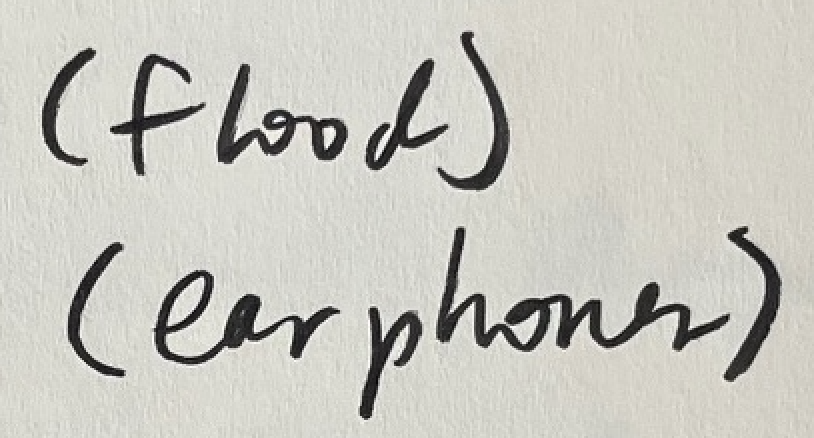 (flood)
(earphones)